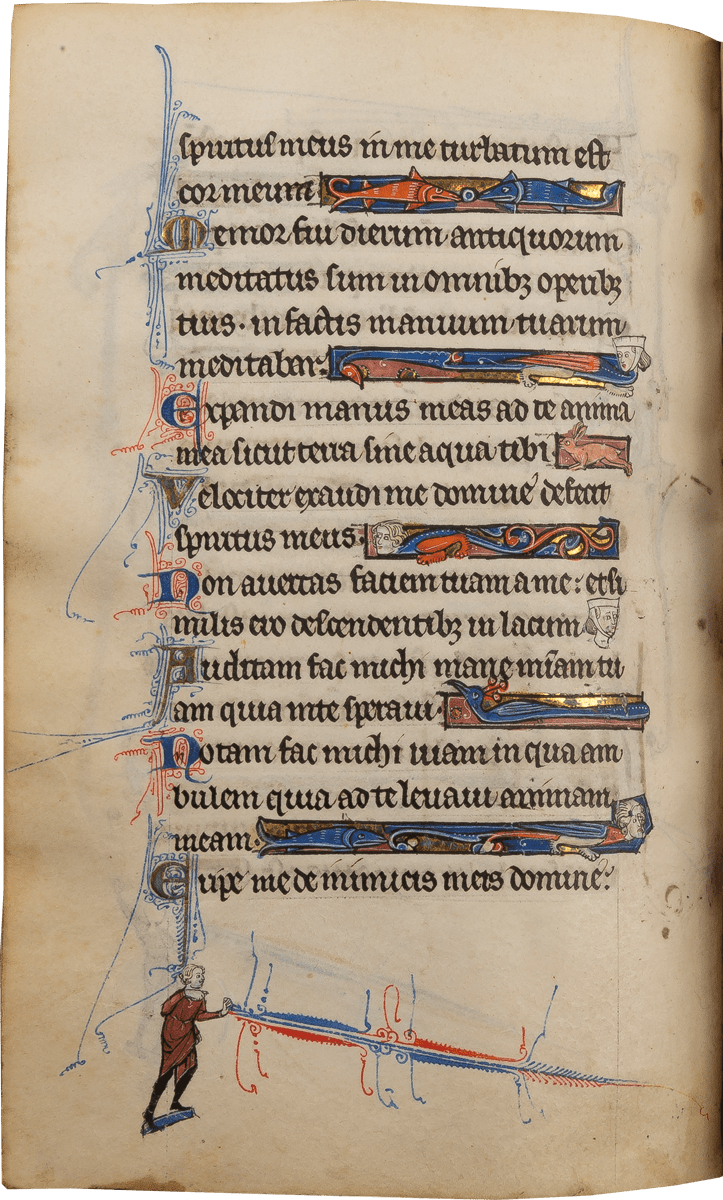 spiritus meus in me turbatum est
cor meum
Memor fui dierum antiquorum
meditatus sum in omnibꝫ operibꝫ
tuis · in factis manuum tuarum
meditabar.
Expandi manus meas ad te anima
mea sicut terra sine aqua tibi
Velociter exaudi me domine defecit
spiritus meus.
Non avertas faciem tuam a me: et si
milis ero descendentibꝫ in lacum
Auditam fac michi mane mīam tu
am quia in te speravi.
Notam fac michi viam in qua am
bulem quia ad te levavi animam
meam.
Eripe me de inimicis meis domine.